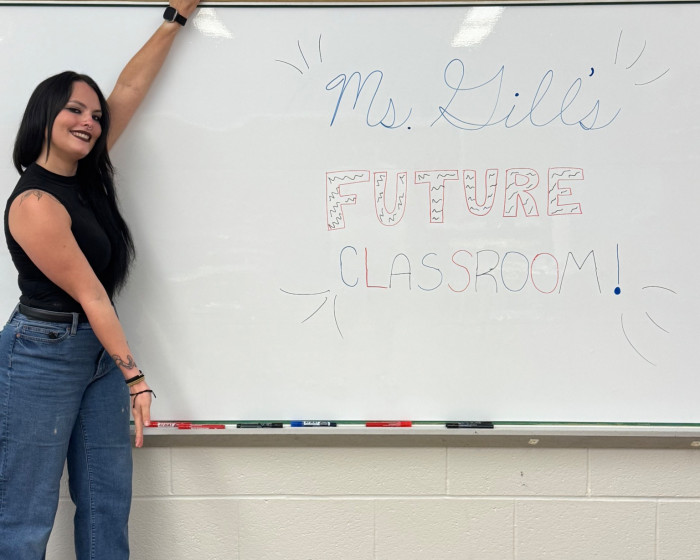 Ms. Gill's
FUTURE
CLASSROOM!